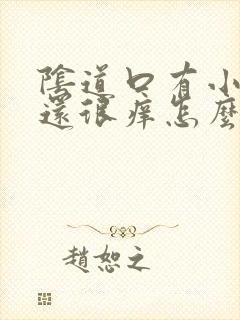 陰道口有小
還很痒怎麼
趙恕之